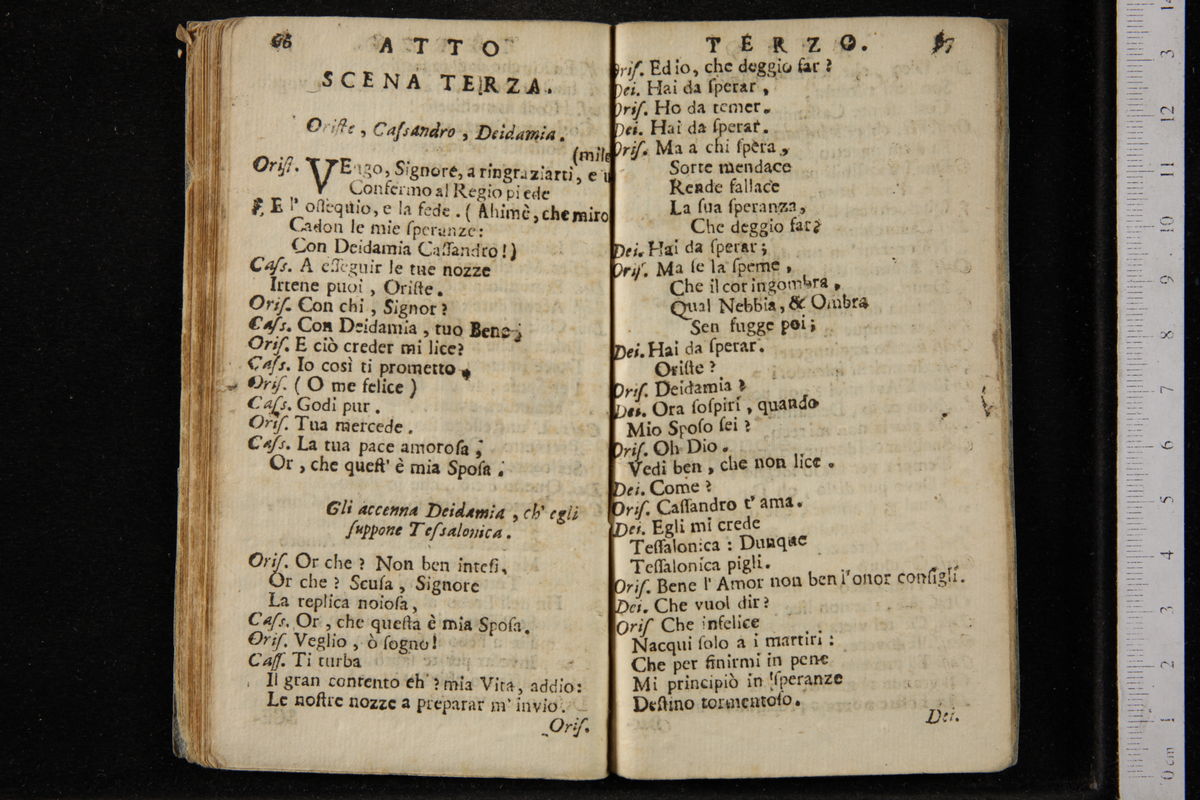 66 ATTO
SCENA TERZA.
Oriſte, Caſsandro, Deidamia.
(mile
Oriſt. VEngo, Signore, a ringraziarti, e u
Confermo al Regio piede
E l' oſſequio, e la fede. (Ahimè, che miro
Cadon le mie ſperanze:
Con Deidamia Caſſandro!)
Caſs. A eſſeguir le tue nozze
Irtene puoi, Oriſte.
Oriſ. Con chi, Signor?
Caſs. Con Deidamia, tuo Bene;
Oriſ. E ciò creder mi lice?
Caſs. Io così ti prometto.
Oriſ. (O me felice)
Caſs. Godi pur.
Oriſ. Tua mercede.
Caſs. La tua pace amoroſa;
Or, che queſt' è mia Spoſa.
Gli accenna Deidamia, ch' egli
ſuppone Teſsalonica.
Oriſ. Or che? Non ben inteſi,
Or che? Scuſa, Signore
La replica noioſa,
Caſs. Or, che queſta è mia Spoſa.
Oriſ. Veglio, ò ſogno!
Caſſ. Ti turba
Il gran contento eh'? mia Vita, addio:
Le noſtre nozze a preparar m' invio.
Oriſ.
TERZO. 67
Oriſ. Ed io, che deggio far?
Dei. Hai da ſperar,
Oriſ. Ho da temer.
Dei. Hai da ſperar.
Oriſ. Ma a chi ſpera,
Sorte mendace
Rende fallace
La ſua ſperanza,
Che deggio far?
Dei. Hai da ſperar;
Oriſ. Ma ſe la ſpeme,
Che il cor ingombra,
Qual Nebbia, & Ombra
Sen fugge poi;
Dei. Hai da ſperar.
Oriſte?
Oriſ. Deidamia?
Dei. Ora ſoſpiri, quando
Mio Spoſo ſei?
Oriſ. Oh Dio.
Vedi ben, che non lice.
Dei. Come?
Oriſ. Caſſandro t' ama.
Dei. Egli mi crede
Teſſalonica: Dunque
Teſſalonica pigli.
Oriſ. Bene l' Amor non ben l'onor conſigli.
Dei. Che vuol dir?
Oriſ Che infelice
Nacqui ſolo a i martiri:
Che per finirmi in pene
Mi principiò in ſperanze
Deſtino tormentoſo.
Dei.